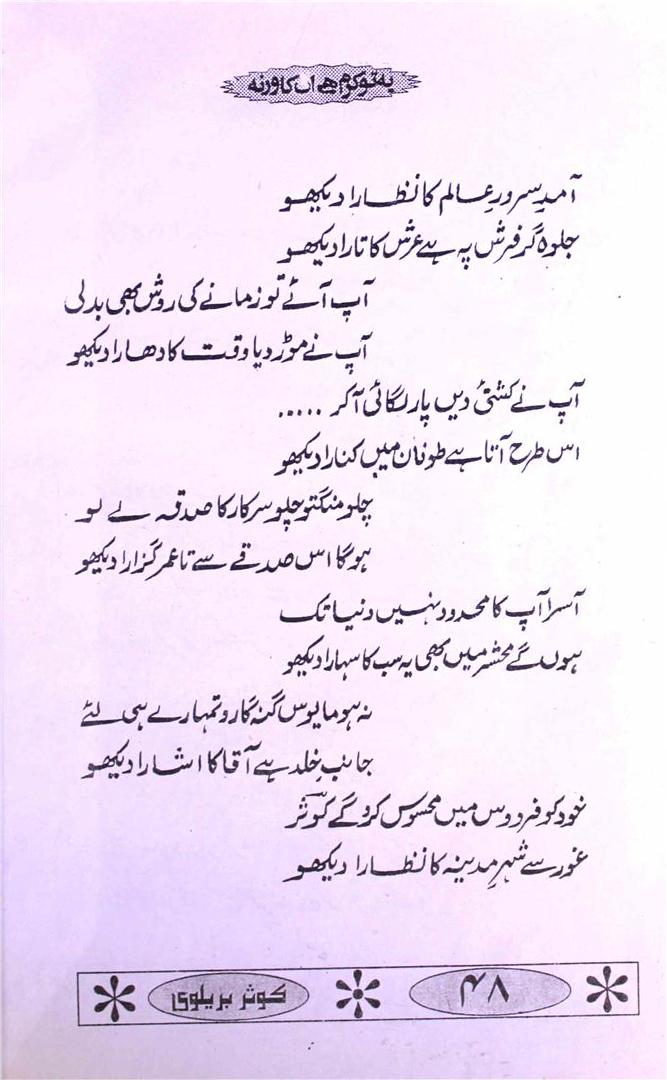 یہ تو کرم ہے ان کا ورنہ
آمدِ سرورِ عالم کا نظارا دیکھو
جلوہ گر فرش پہ ہے عرش کا تارا دیکھو
آپ آئے تو زمانے کی روش بھی بدلی
آپ نے موڑ دیا وقت کا دھارا دیکھو
آپ نے کشتیٔ دیں پار لگائی آکر .....
اس طرح آتا ہے طوفان میں کنارا دیکھو
چلو منگتو چلو سرکار کا صدقہ لے لو
ہوگا اس صدقے سے تاعمر گزارا دیکھو
آسرا آپ کا محدود نہیں دنیا تک
ہوں گے محشر میں بھی یہ سب کا سہارا دیکھو
نہ ہو مایوس گنہ گارو تمہارے ہی لئے
جانبِ خلد ہے آقا کا اشارا دیکھو
خود کو فردوس میں محسوس کروگے کوثرؔ
غور سے شہرِ مدینہ کا نظارا دیکھو
۴۸
کوثر بریلوی